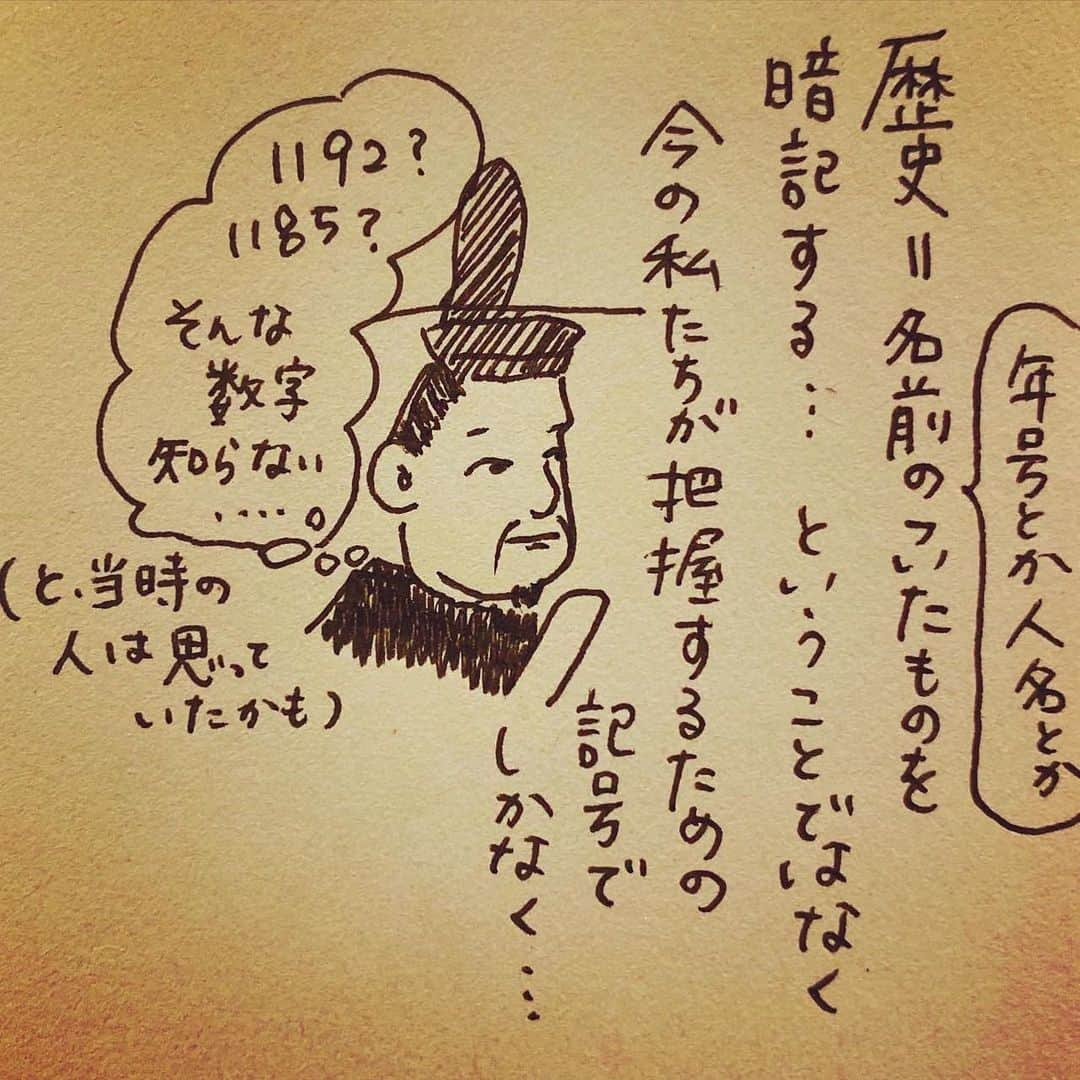 年号とか人名とか
歴史=名前のついたものを
暗記する…ということではなく
今の私たちが把握するための
記号で
しかなく…
1192?
1185?
そんな
数字
知らない
....
(と、当時の
人は思って
いたかも)